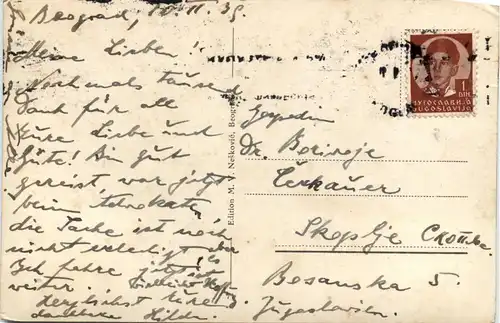 Beograd, 10. II. 39.
Meine Lieben!
Nochmals tausend
Dank für all
Eure Liebe und
Güte! Bin gut
gereist war jetzt
beim Advokaten
die Sache ist noch
nicht erledigt aber
Ich fahre jetzt
weiter.
Herzlichst Eure
dankbare Hilde.
Edition M. V. Nešković, Beograd
1
DIN
ЈУГОСЛАВИЈА
JUGOSLAVIJA
Gospodin
Dr. Borivoje
Skoplje Скопље
Besanska 5.
Jugoslavien